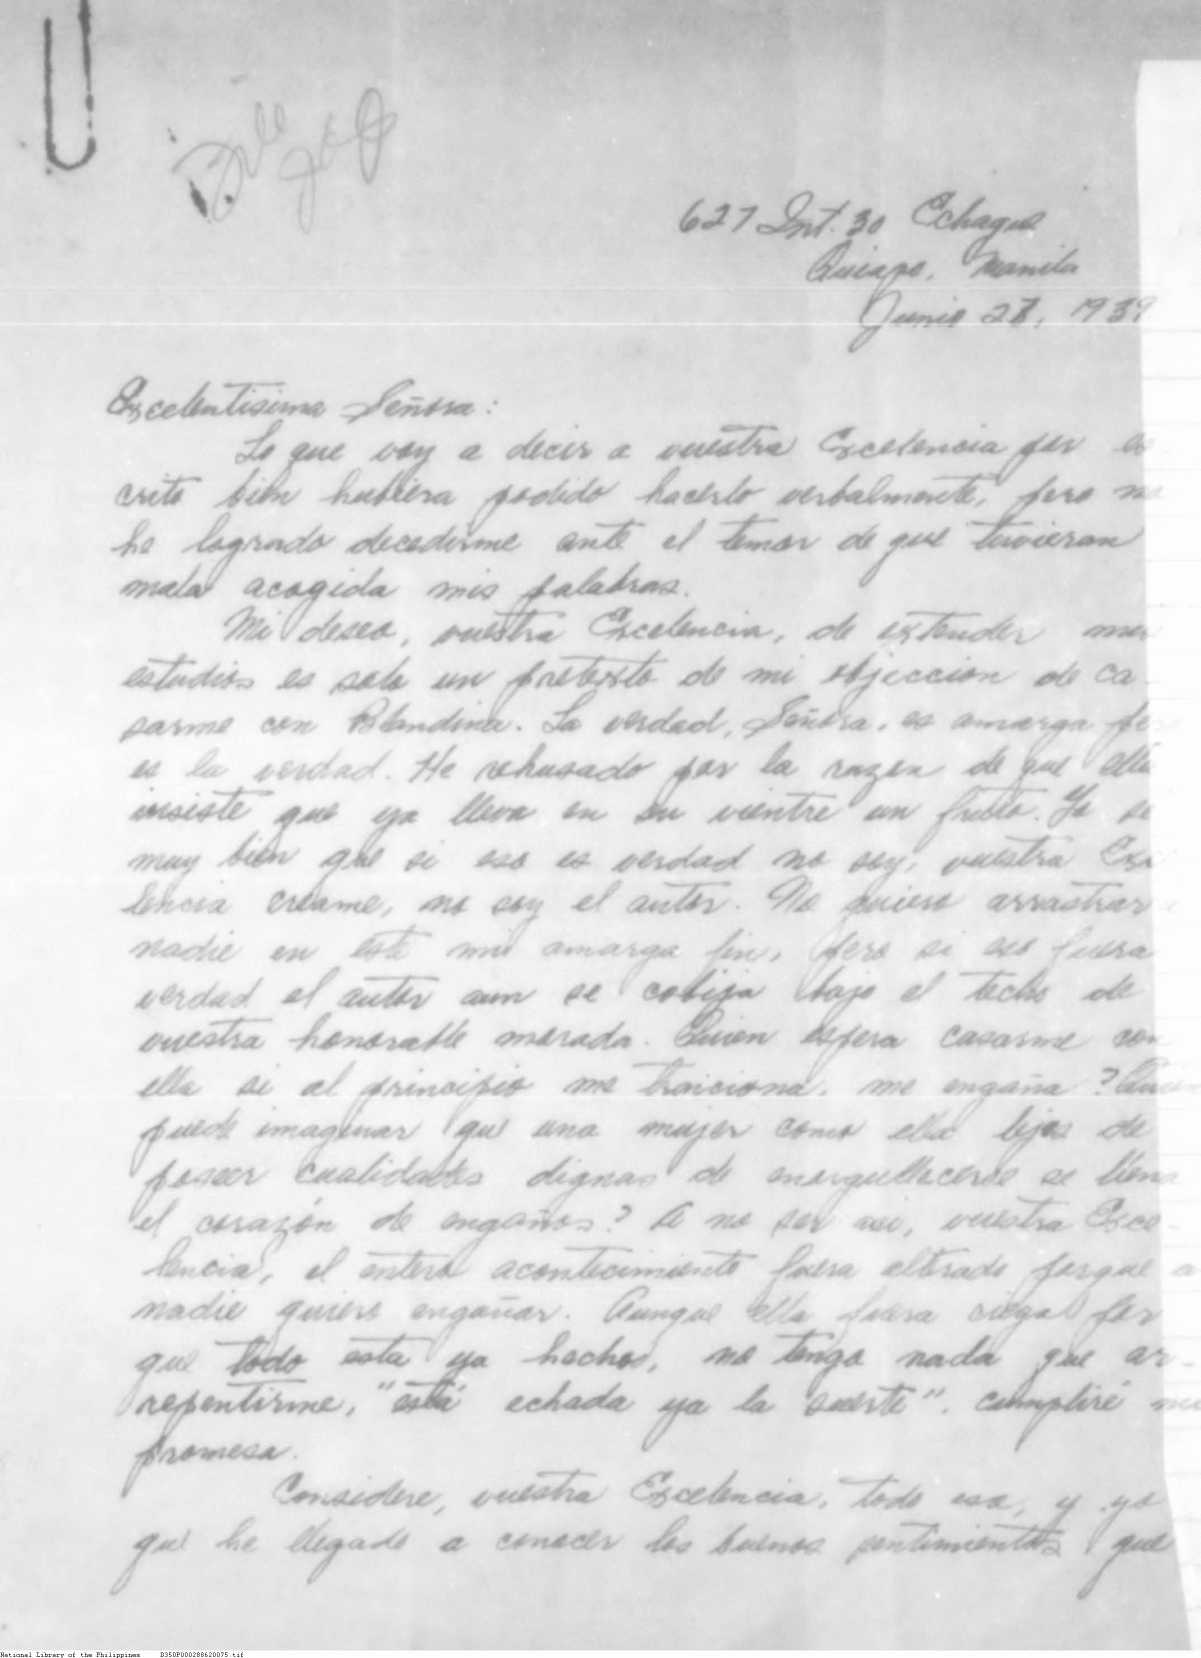 627 Int. 30 Echague
Quiapo, Manila
Junio 27, 1939
Excelentisima Señora:
Lo que voy a decir a vuestra Excelencia por es
crito bien hubiera podido hacerlo verbalmente, pero no
he logrado decedirme ante el temor de que tuvieran
mala acogida mis palabras.
Mi deseo, vuestra Excelencia, de extender mis
estudios es solo un pretexto de mi objeccion de ca-
sarme con Blandina. La verdad, Señora, es amarga pero
es la verdad. He rehusado por la razon de que ella
insiste que ya lleva en su vientre un fruto. Yo se
muy bien que si eso es verdad no soy, vuestra Exce
lencia creame, no soy el autor. No quiero arrastrar a
nadie en este mi amarga fin, pero si eso fuera
verdad el autor aun se cobija bajo el techo de
vuestra honorable morada. Quien espera casarme con
ella si al principio me traiciona, me engaña? Quien
puede imaginar que una mujer como ella lejos de
poseer cualidades dignas de enorgullecerse se llena
el corazón de engaños? A no ser asi, vuestra Exce-
lencia, el entero acontecimiento fuera alterado porque a
nadie quiero engañar. Aunque ella fuera ciega por
que todo esta ya hechos, no tengo nada que ar-
repentirme, "está echada ya la suerte". Cumpliré mi
promesa.
Considere, vuestra Excelencia, todo eso, y ya
que he llegado a conocer los buenos sentimientos que
National Library of the Philippines D350P000288620075.tif